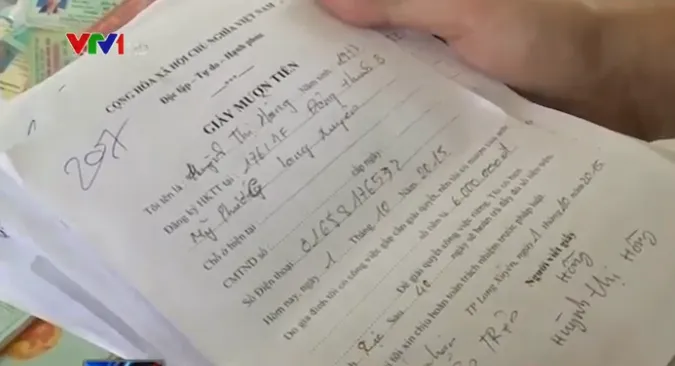 VTV1
CỘNG HÒA XÃ HỘI CHỦ NGHĨA VIỆT NAM
Độc lập – Tự do – Hạnh phúc
GIẤY MƯỢN TIỀN
207
Tôi tên là Huỳnh Thị Hồng Năm sinh
Đăng ký HKTT tại 176L1E Đông Thịnh 8
Mỹ Phước Long Xuyên
Chỗ ở hiện tại
CMTND số cấp ngày
Số Điện thoại 01658176532
Hôm nay, ngày 1 Tháng 10 Năm 2015
Do gia đình tôi có công việc gấp cần giải quyết, nên tôi có mượn của
số tiền là 6.000.000đ
Để giải quyết công việc riêng. Tôi có hẹn
sau 40 ngày sẽ hoàn trả đầy đủ số tiền trên.
tôi xin chịu hoàn toàn trách nhiệm trước pháp luật
TP Long Xuyên, ngày 1 tháng 10 năm 2015
Người viết giấy
Hồng
Huỳnh Thị Hồng